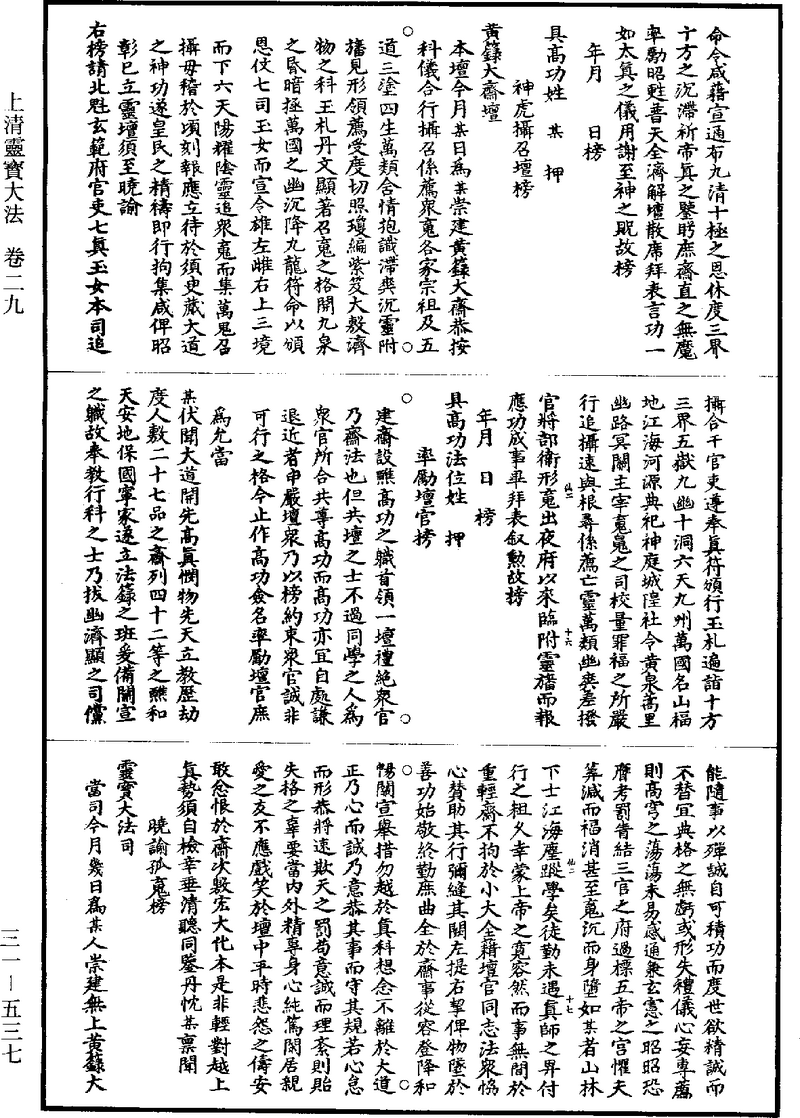 上清靈寶大法　卷二九
三一－五三七
命令咸藉宣通布九清十極之恩休度三界
十方之沉滯祈帝真之鑒眄庶齋直之無魔
率勵昭甦普天全濟解壇散席拜表言功一
如太真之儀用謝至神之貺故榜
年月　日榜
具高功姓　某　押
神虎攝召壇榜
黃籙大齋壇
本壇今月某日為某崇建黃籙大齋恭按
科儀合行攝召係薦眾魂各家宗祖及五
道三塗四生萬類合情抱識滯爽沉靈附
旛見形領薦受度切照瓊編紫笈大敷濟
物之科玉札丹文顯著召魂之格開九泉
之昏暗拯萬國之幽沉降九龍符命以頒
恩仗七司玉女而宣令雄左雌右上三境
而下六天陽耀陰靈追眾魂而集萬鬼召
攝毋稽於頃刻報應立待於須臾蕆大道
之神功遂皇民之精禱即行拘集咸俾昭
彰已立靈壇須至曉諭
右榜請北魁玄範府官吏七真玉女本司追
攝合干官吏遵奉真符頒行玉札遍詣十方
三界五嶽九幽十洞六天九州萬國名山福
地江海河源典祀神庭城隍社令黃泉蒿里
幽路冥關主宰魂鬼之司校量罪福之所嚴
行追攝速與根尋係薦亡靈萬類幽爽差撥
官將部衛形魂出夜府以來臨附靈旛而報
應功成事畢拜表叙勳故榜
年月　日　榜
具高功法位姓　押
率勵壇官榜
建齋設醮高功之職首領一壇禮絕眾官
乃齋法也但共壇之士不過同學之人為
眾官所合共尊高功而高功亦宜自處謙
退近者申嚴壇眾乃以榜約束眾官誠非
可行之格今止作高功僉名率勵壇官庶
為允當
某伏聞大道開先高真憫物先天立教歷劫
度人敷二十七品之齋列四十二等之醮和
天安地保國寧家遂立法籙之班爰備關宣
之職故奉教行科之士乃拔幽濟顯之司儻
能隨事以殫誠自可積功而度世欲精誠而
不替宜典格之無虧或形失禮儀心妄專薦
則高穹之蕩蕩未易感通兼玄憲之昭昭恐
膺考罰眚結三官之府過標五帝之宮懼夭
筭減而福消甚至魂沉而身墮如某者山林
下士江海塵蹤學矣徒勤未遇真師之昇付
行之相久幸蒙上帝之寬容然而事無間於
重輕齋不拘於小大全藉壇官同志法眾協
心贊助其行彌縫其闕左提右挈俾物墜於
善功始敬終勤庶曲全於齋事從容登降和
暢關宣舉措勿越於真科想念不離於大道
正乃心而誠乃意恭其事而守其規若心怠
而形恭將速欺天之罰苟意誠而理紊則貽
失格之辜要當內外精專身心純篤閑居親
愛之友不應戲笑於壇中平時悲怨之儔安
敢忿恨於齋次敷宏大化本是非輕對越上
真勢須自檢幸垂清聽同鑒丹忱某稟聞
曉諭孤魂榜
靈寶大法司
當司今月幾日為某人崇建無上黃籙大